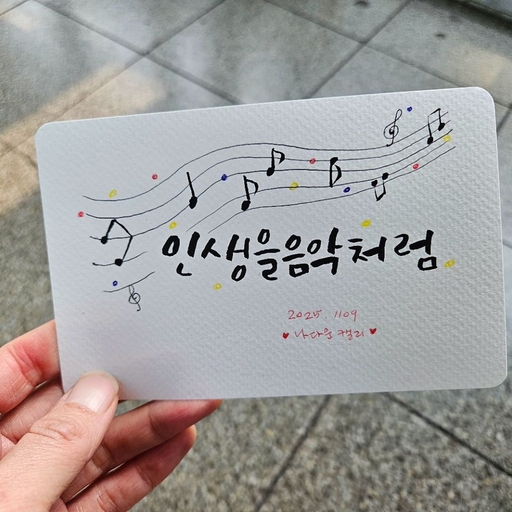 인생을음악처럼
2025. 1109
♥ 나다움 캘리 ♥